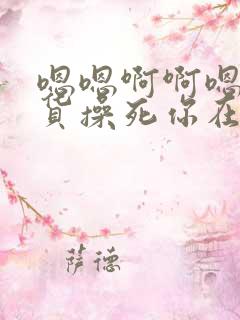 嗯嗯啊啊嗯
贝操死你在
萨德